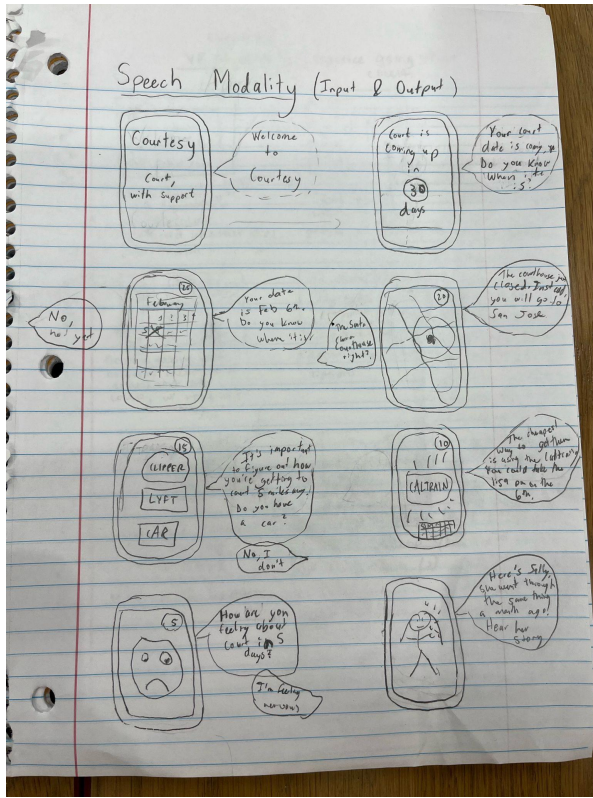 Speech Modality (Input & Output)
Courtesy
Court,
with support
Welcome
to
Courtesy
Court is
coming up
in
30
days
Your court
date is coming up.
Do you know
when it
is?
No,
not yet
20
February
5
Your date
is Feb 6th.
Do you know
where it is?
The Santa
Clara
courthouse
right?
20
The courthouse just
closed. Instead,
you will go to
San Jose
15
CLIPPER
LYFT
CAR
It's important
to figure out how
you're getting to
court 5 miles away.
Do you have
a car?
No, I
don't
10
CALTRAIN
The cheapest
way to get there
is using the Caltrain.
You could take the
pm on the
6th.
5
How are you
feeling about
court in 5
days?
I'm feeling
nervous
Here's Sally,
she went through
the same thing
a month ago!
Hear her
story